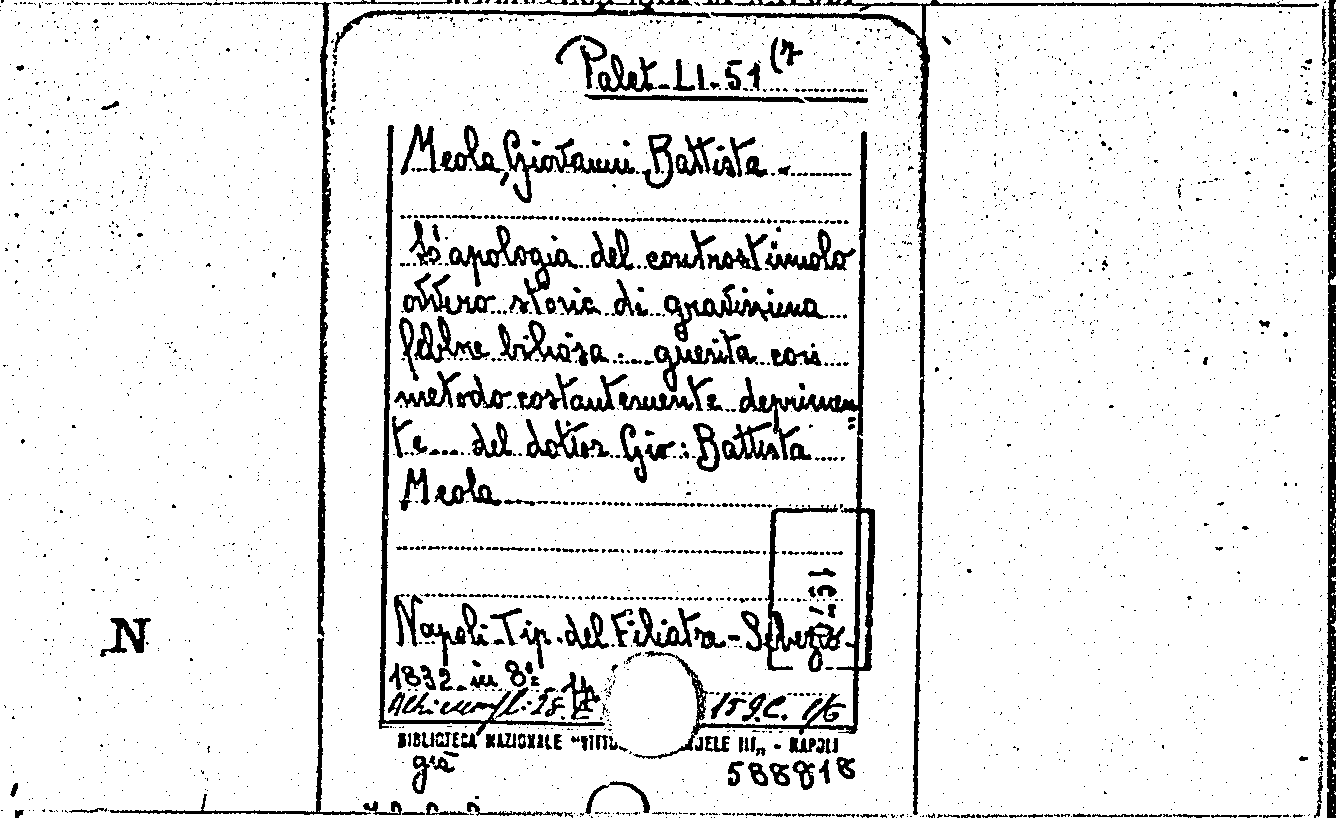 Palat. LI. 51 (7
Meola, Giovanni Battista
L'apologia del controstimolo
ovvero storia di gravissima
febbre biliosa ... guerita con
metodo costantemente deprimen„
te ... del dottor Gio: Battista
Meola
N
Napoli - Tip. del Filiatre - Sebezio
1832 in 8°
159.C. 1/6
BIBLIOTECA NAZIONALE "VITTO ELE III„ - NAPOLI
già
588818